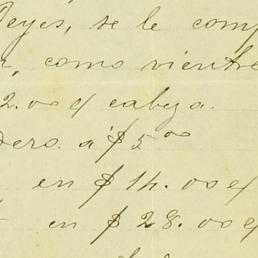 Reyes, se le comp
, como vientre
2.00 c/ cabeza.
dero. a $5.00
en $14.00 c/
en $28.00 c/